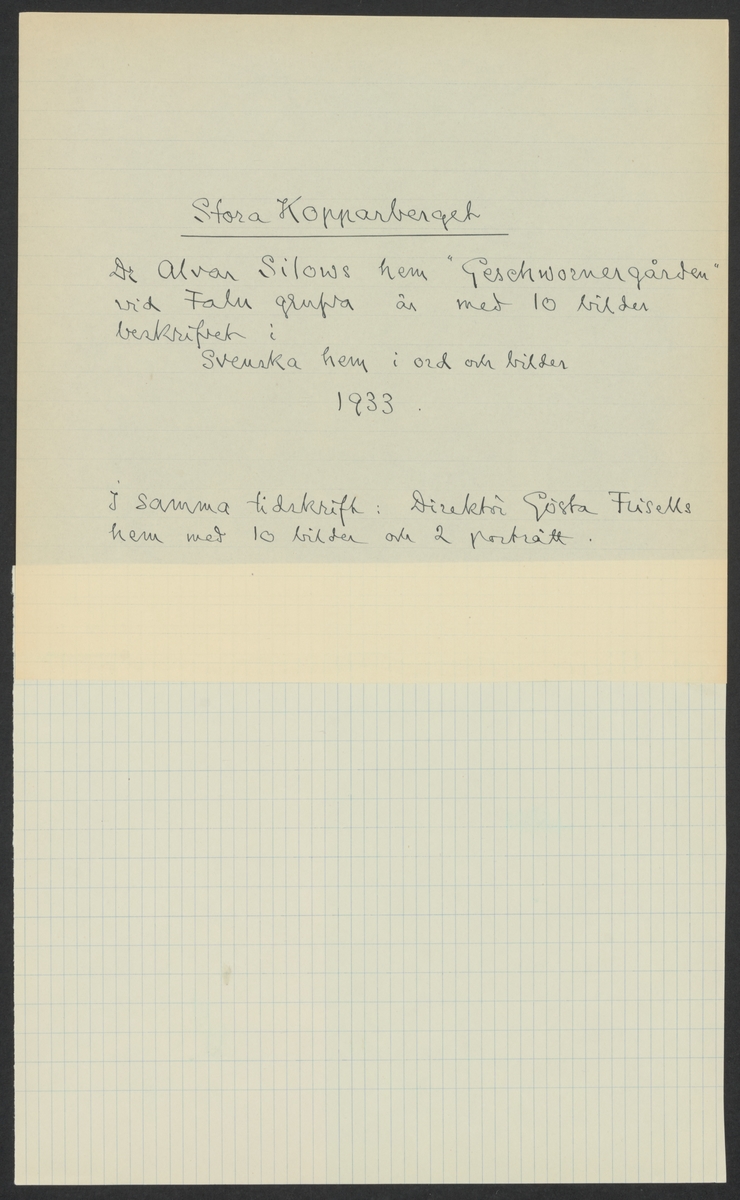 Stora Kopparberget
Dr Alvar Silows hem "Geschwornergården"
vid Falu gruva är med 10 bilder
beskrifvet i
Svenska hem i ord och bilder
1933.
I samma tidskrift: Direktör Gösta Frisells
hem med 10 bilder och 2 porträtt.